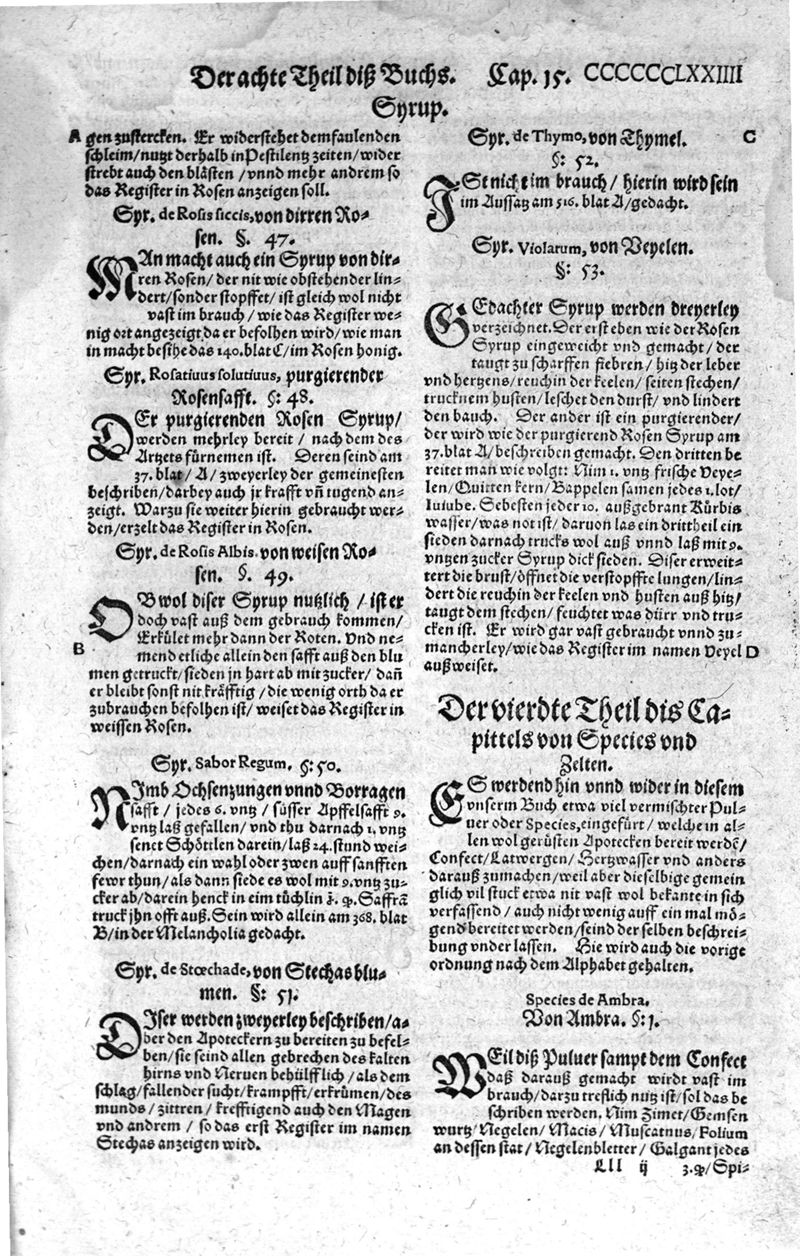 Der achte Theil diß Buchs. Cap. 15. CCCCCCCLXXIIII
Syrup.
A gen zustercken. Er widerstehet dem faulenden
schleim/nutzt derhalb in Pestilentz zeiten/wider
strebt auch den blästen/vnnd mehr andrem so
das Register in Rosen anzeigen soll.
Syr. de Rosis siccis, von dirren Ro-
sen. §. 47.
MAn macht auch ein Syrup von dir-
ren Rosen/der nit wie obstehender lin-
dert/sonder stopffet/ist gleich wol nicht
vast im brauch/wie das Register we-
nig ort angezeigt da er befolhen wird/wie man
in macht besihe das 140. blat C/im Rosen honig.
Syr. Rosatiuus solutiuus, purgierender
Rosensafft. §: 48.
DEr purgierenden Rosen Syrup/
werden mehrley bereit/nach dem des
Artzets fürnemen ist. Deren seind am
37. blat/A/zweyerley der gemeinesten
beschriben/darbey auch jr krafft vn̄ tugend an-
zeigt. Warzu sie weiter hierin gebraucht wer-
den/erzelt das Register in Rosen.
Syr. de Rosis Albis. von weisen Ro-
sen. §. 49.
OBwol diser Syrup nutzlich/ist er
doch vast auß dem gebrauch kommen/
Erkület mehr dann der Roten. Vnd ne-
B mend etliche allein den safft auß den blu
men getruckt/sieden jn hart ab mit zucker/dañ
er bleibt sonst nit kräfftig/die wenig orth da er
zubrauchen befolhen ist/weiset das Register in
weissen Rosen.
Syr. Sabor Regum. §: 50.
NImb Ochsenzungen vnnd Borragen
safft/jedes 6. vntz/süsser Apffelsafft 9.
vntz laß gefallen/vnd thu darnach 1. vntz
senet Schöttlen darein/laß 24. stund wei-
chen/darnach ein wahl oder zwen auff sanfften
fewr thun/als dann siede es wol mit 9. vntz zu-
cker ab/darein henck in eim tüchlin Saffrā
truck jhn offt auß. Sein wird allein am 368. blat
B/in der Melancholia gedacht.
Syr. de Stœchade, von Stechas blu-
men. §: 51.
DIser werden zweyerley beschriben/a-
ber den Apoteckern zu bereiten zu befel-
hen/sie seind allen gebrechen des kalten
hirns vnd Neruen behülfflich/als dem
schlag/fallender sucht/krampfft/erkrümen/des
munds/zittren/krefftigend auch den Magen
vnd andrem/so das erst Register im namen
Stechas anzeigen wird.
Syr. de Thymo, von Thymel. C
§: 52.
ISt nicht im brauch/hierin wird sein
im Aussatz am 516. blat A/gedacht.
Syr. Violarum, von Veyelen.
§: 53.
GEdachter Syrup werden dreyerley
verzeichnet. Der erst eben wie der Rosen
Syrup eingeweicht vnd gemacht/der
taugt zu scharffen fiebren/hitz der leber
vnd hertzens/reuchin der keelen/seiten stechen/
trucknem husten/leschet den durst/vnd lindert
den bauch. Der ander ist ein purgierender/
der wird wie der purgierend Rosen Syrup am
37. blat A/beschriben gemacht. Den dritten be
reitet man wie volgt: Nim 1. vntz frische Veye-
len/Quitten kern/Bappelen samen jedes 1. lot/
Iuiube. Sebesten jeder 10. außgebrant Kürbis
wasser/was not ist/daruon las ein drittheil ein
sieden darnach trucks wol auß vnnd laß mit 9.
vntzen zucker Syrup dick sieden. Diser erweit-
tert die brust/öffnet die verstopffte lungen/lin-
dert die reuchin der keelen vnd husten auß hitz/
taugt dem stechen/feuchtet was dürr vnd tru-
cken ist. Er wird gar vast gebraucht vnnd zu-
mancherley/wie das Register im namen Veyel D
außweiset.
Der vierdte Theil dis Ca-
pittels von Species vnd
Zelten.
ES werdend hin vnnd wider in diesem
vnserm Buch etwa viel vermischter Pul-
uer oder Species, eingefürt/welche in al-
len wol gerüsten Apotecken bereit werdē/
Confect/Latwergen/Hertzwasser vnd anders
darauß zumachen/weil aber dieselbige gemein
glich vil stuck etwa nit vast wol bekante in sich
verfassend/auch nicht wenig auff ein mal mö-
gend bereitet werden/seind der selben beschrei-
bung vnder lassen. Hie wird auch die vorige
ordnung nach dem Alphabet gehalten.
Species de Ambra.
Von Ambra. §: 1.
WEil diß Puluer sampt dem Confect
daß darauß gemacht wirdt vast im
brauch/darzu treslich nutz ist/sol das be
schriben werden. Nim Zimet/Gemsen
wurtz/Negelen/Macis/Muscatnus/Folium
an dessen stat/Negelenbletter/Galgant jedes
Lll ij 3. /Spi-